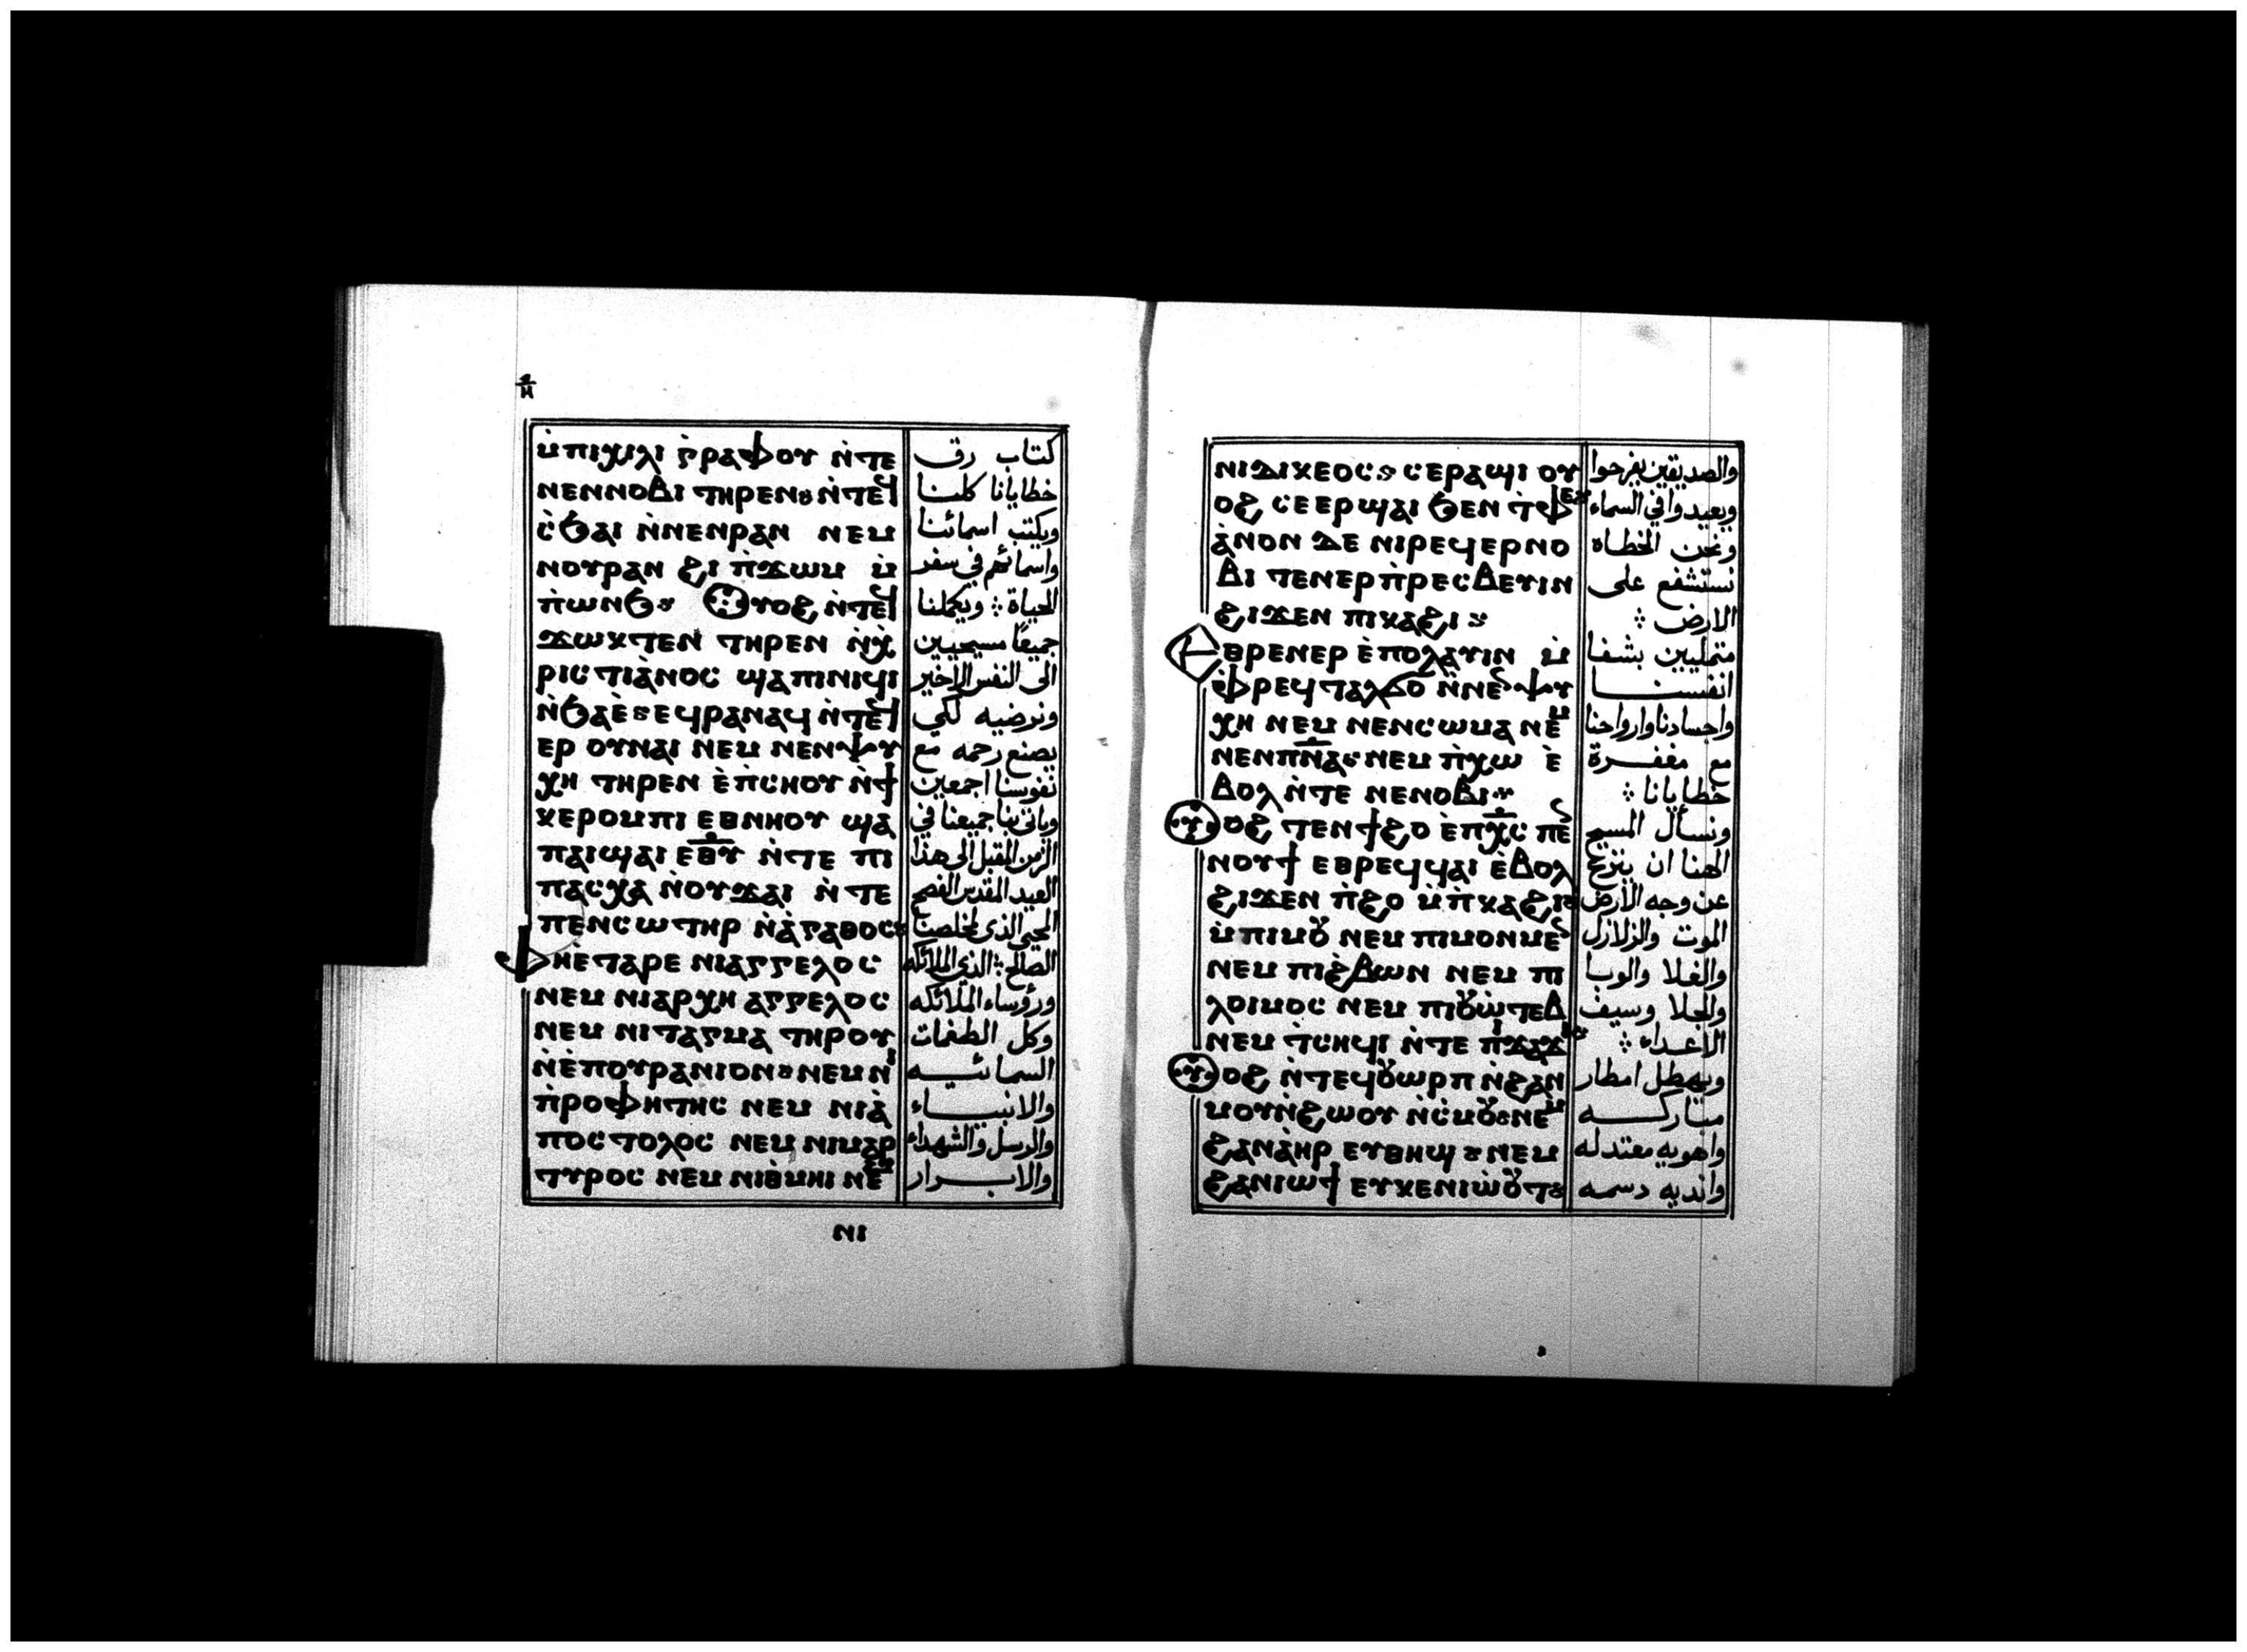 ⲙ̇ⲡⲓϫⲓⲗⲓ ⲅ̇ⲣⲁⲫⲟⲩ ⲛ̇ⲧⲉ
ⲛⲉⲛⲛⲟⲃⲓ ⲧⲏⲣⲉⲛ ⲛ̇ⲧⲉϥ
ⲥ̇ϧⲁⲓ ⲛ̇ⲛⲉⲛⲣⲁⲛ ⲛⲉⲙ
ⲛⲟⲩⲣⲁⲛ ϩⲓ ⲡ̇ϫⲱⲙ ⲙ̇
ⲡ̇ⲱⲛϧ Ⲟⲩⲟϩ ⲛ̇ⲧⲉϥ
ϫⲱⲕⲧⲉⲛ ⲧⲏⲣⲉⲛ ⲛ̇ⲭ̇
ⲣⲓⲥⲧⲓⲁ̇ⲛⲟⲥ ϣⲁⲡⲓⲛⲓϥⲓ
ⲛ̇ϧⲁⲉ̇ ⲉϥⲣⲁⲛⲁϥ ⲛ̇ⲧⲉϥ
ⲉⲣ ⲟⲩⲛⲁⲓ ⲛⲉⲙ ⲛⲉⲛⲯⲩ
ⲭⲏ ⲧⲏⲣⲉⲛ ⲉ̇ⲡⲥⲏⲟⲩ ⲛ̇ϯ
ⲕⲉⲣⲟⲙⲡⲓ ⲉⲑⲛⲏⲟⲩ ϣⲁ
ⲡⲁⲓϣⲁⲓ ⲉⲑⲩ ⲛ̇ⲧⲉ ⲡⲓ
ⲡⲁⲥⲭⲁ ⲛ̇ⲟⲩϫⲁⲓ ⲛ̇ⲧⲉ
ⲡⲉⲛⲥⲱⲧⲏⲣ ⲛ̇ⲁ̇ⲅⲁⲑⲟⲥ
Ⲫⲏⲉ̇ⲧⲁⲣⲉ ⲛⲓⲁⲅⲅⲉⲗⲟⲥ
ⲛⲉⲙ ⲛⲓⲁⲣⲭⲏ ⲁⲅⲅⲉⲗⲟⲥ
ⲛⲉⲙ ⲛⲓⲧⲁⲅⲙⲁ ⲧⲏⲣⲟⲩ
ⲛ̇ⲉ̇ⲡⲟⲩⲣⲁⲛⲓⲟⲛ ⲛⲉⲙ ⲛⲓ
ⲡ̇ⲣⲟⲫⲏⲧⲏⲥ ⲛⲉⲙ ⲛⲓⲁ̇
ⲡⲟⲥⲧⲟⲗⲟⲥ ⲛⲉⲙ ⲛⲓⲙⲁⲣ
ⲧⲩⲣⲟⲥ ⲛⲉⲙ ⲛⲓⲑ̇ⲙⲏⲓ ⲛⲉⲙ
ⲛⲓ
كتاب رق
خطايانا كلنا
ويكتب اسمائنا
واسمائهم في سفر
الحياة ؞ ويكملنا
جميعاً مسيحيين
الى النفس الاخير
ونرضيه لكي
يصنع رحمه مع
نفوسنا اجمعين
وياتى بنا جميعنا في
الزمن المقبل الى هذا
العيد المقدس الفصح
المحيي الذي لمخلصنا
الصالح ؞ الذي الملائكه
ورؤساء الملائكه
وكل الطغمات
السمائيه
والانبياء
والرسل والشهداء
والابرار
ⲛⲓⲇⲓⲕⲉⲟⲥ ⲥⲉⲣⲁϣⲓ ⲟⲩ
ⲟϩ ⲥⲉⲉⲣϣⲁⲓ ϧⲉⲛ ⲧ̇ⲫⲉ
ⲁ̇ⲛⲟⲛ ⲇⲉ ⲛⲓⲣⲉϥⲉⲣⲛⲟ
ⲃⲓ ⲧⲉⲛⲉⲣⲡ̇ⲣⲉⲥⲃⲉⲩⲓⲛ
ϩⲓϫⲉⲛ ⲡⲓⲕⲁϩⲓ
Ⲉⲑⲣⲉⲛⲉⲣ ⲉ̇ⲡⲟⲗⲁⲩⲓⲛ ⲙ̇
ⲉ̇ⲫⲣⲉϥⲧⲁⲗϭⲟ ⲛ̇ⲛⲉⲛⲯⲩ
ⲭⲏ ⲛⲉⲙ ⲛⲉⲛⲥⲱⲙⲁ ⲛⲉⲙ
ⲛⲉⲛⲡ̅ⲛ̅ⲁ̅ ⲛⲉⲙ ⲡ̇ⲭⲱ ⲉ̇
ⲃⲟⲗ ⲛ̇ⲧⲉ ⲛⲉⲛⲟⲃⲓ
Ⲟⲩⲟϩ ⲧⲉⲛϯϩⲟ ⲉ̇ⲡⲭ̅ⲥ̅ ⲡⲉ
ⲛⲟⲩϯ ⲉⲑⲣⲉϥϥⲁⲓ ⲉ̇ⲃⲟⲗ
ϩⲓϫⲉⲛ ⲡ̇ϩⲟ ⲙ̇ⲡ̇ⲕⲁϩⲓ
ⲙ̇ⲡⲓⲙⲟⲩ ⲛⲉⲙ ⲡⲓⲙⲟⲛⲙⲉⲛ
ⲛⲉⲙ ⲡⲓϩ̇ⲃⲱⲛ ⲛⲉⲙ ⲡⲓ
ⲗⲟⲓⲙⲟⲥ ⲛⲉⲙ ⲡⲓⲟⲩⲱ̇ⲧⲉⲃ
ⲛⲉⲙ ⲧ̇ⲥⲏϥⲓ ⲛ̇ⲧⲉ ⲡ̇ϫⲁϫⲓ
Ⲟⲩⲟϩ ⲛ̇ⲧⲉϥⲟⲩⲱⲣⲡ ⲛ̇ϩⲁⲛ
ⲙⲟⲩⲛ̇ϩⲱⲟⲩ ⲛ̇ⲥ̇ⲙⲟⲩ ⲛⲉⲙ
ϩⲁⲛⲁ̇ⲏⲣ ⲉⲩⲑⲏϣ ⲛⲉⲙ
ϩⲁⲛⲓⲱϯ ⲉⲩⲕⲉⲛⲓⲱ̇ⲟⲩⲧ
والصديقين يفرحوا
ويعيدوا في السماء
ونحن الخطاه
نستشفع على
الارض ؞
متمليين بشفا
انفسنا
واجسادنا وارواحنا
مع مغفرة
خطايانا ؞
ونسأل المسيح
الهنا ان ينزع
عن وجه الارض
الموت والزلازل
والغلا والوبا
والجلا وسيف
الاعداء ؞
ويهطل امطار
مباركه
واهويه معتدله
وانديه دسمه